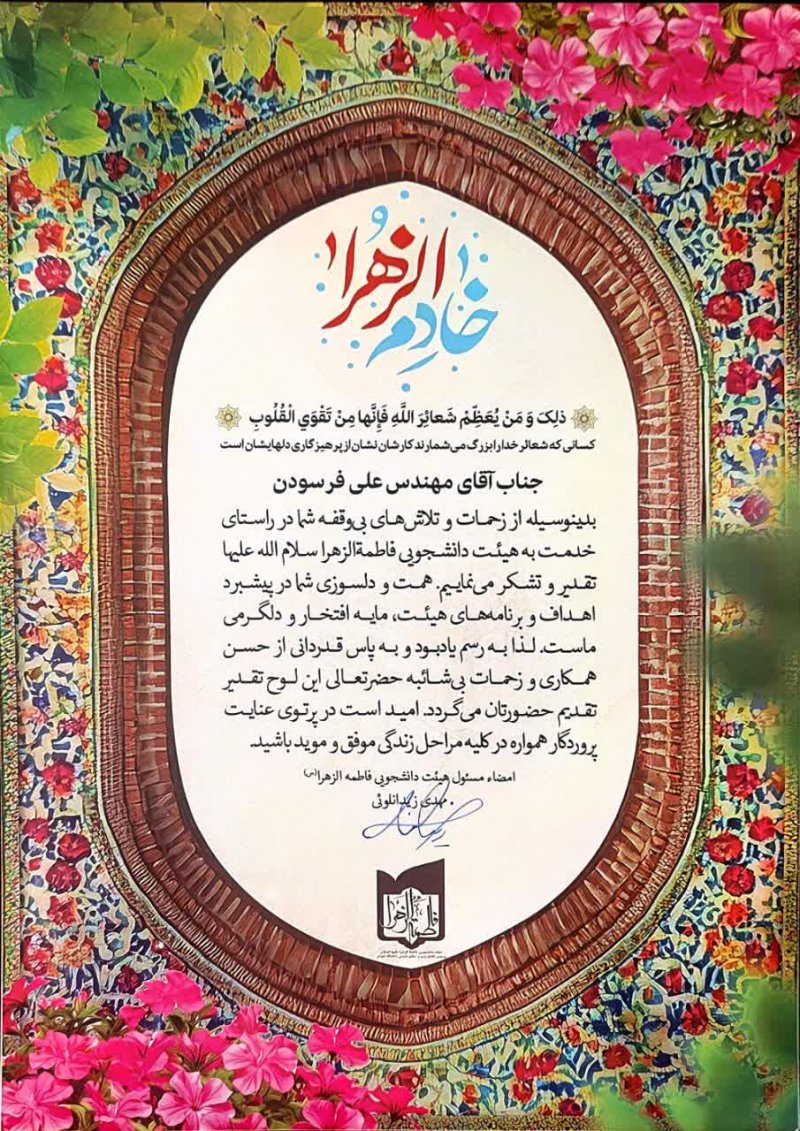 خادم الزهرا
ذلِكَ وَ مَنْ يُعَظِّمْ شَعائِرَ اللَّهِ فَإِنَّها مِنْ تَقْوَي الْقُلُوبِ
کسانی که شعائر خدا را بزرگ می‌شمارند کارشان نشان از پرهیزگاری دلهایشان است
جناب آقای مهندس علی فرسودن
بدینوسیله از زحمات و تلاش‌های بی‌وقفه شما در راستای
خدمت به هیئت دانشجویی فاطمةالزهرا سلام الله علیها
تقدیر و تشکر می‌نماییم. همت و دلسوزی شما در پیشبرد
اهداف و برنامه‌های هیئت، مایه افتخار و دلگرمی
ماست. لذا به رسم یادبود و به پاس قدردانی از حسن
همکاری و زحمات بی‌شائبه حضرتعالی این لوح تقدیر
تقدیم حضورتان می‌گردد. امید است در پرتوی عنایت
پروردگار همواره در کلیه مراحل زندگی موفق و موید باشید.
امضاء مسئول هیئت دانشجویی فاطمه الزهرا(س)
مهدی زیدانلوئی
فاطمة الزهرا